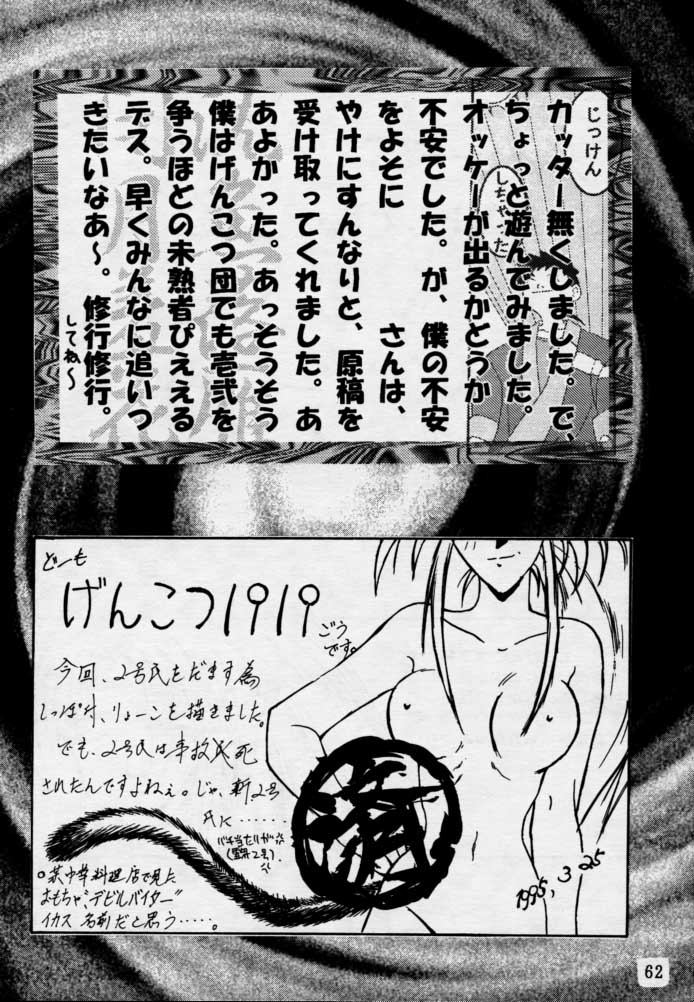 じっけん
しちゃった
カッター無くしました。で、
ちょっと遊んでみました。
オッケーが出るかとうか
不安でした。が、僕の不安
をよそに　　　さんは、
やけにすんなりと、原稿を
受け取ってくれました。あ
あよかった。あっそうそう
僕はげんこつ団でも壱弐を
争うほどの未熟者ぴええる
デス。早くみんなに追いつ
きたいなあ～。修行修行。
してね～
どーも
げんこつ1919
ごう
です。
今回、2号氏をだます為
しっぽ付、りょーこを描きました。
でも、2号氏は事故民死
されたんですよねぇ。じゃ、新2号
氏に……
バチ当たりが☆
済
。某中華料理店で見た
おもちゃ“デビルバイター”
イカス名前だと思う……。
1995,3,25
62